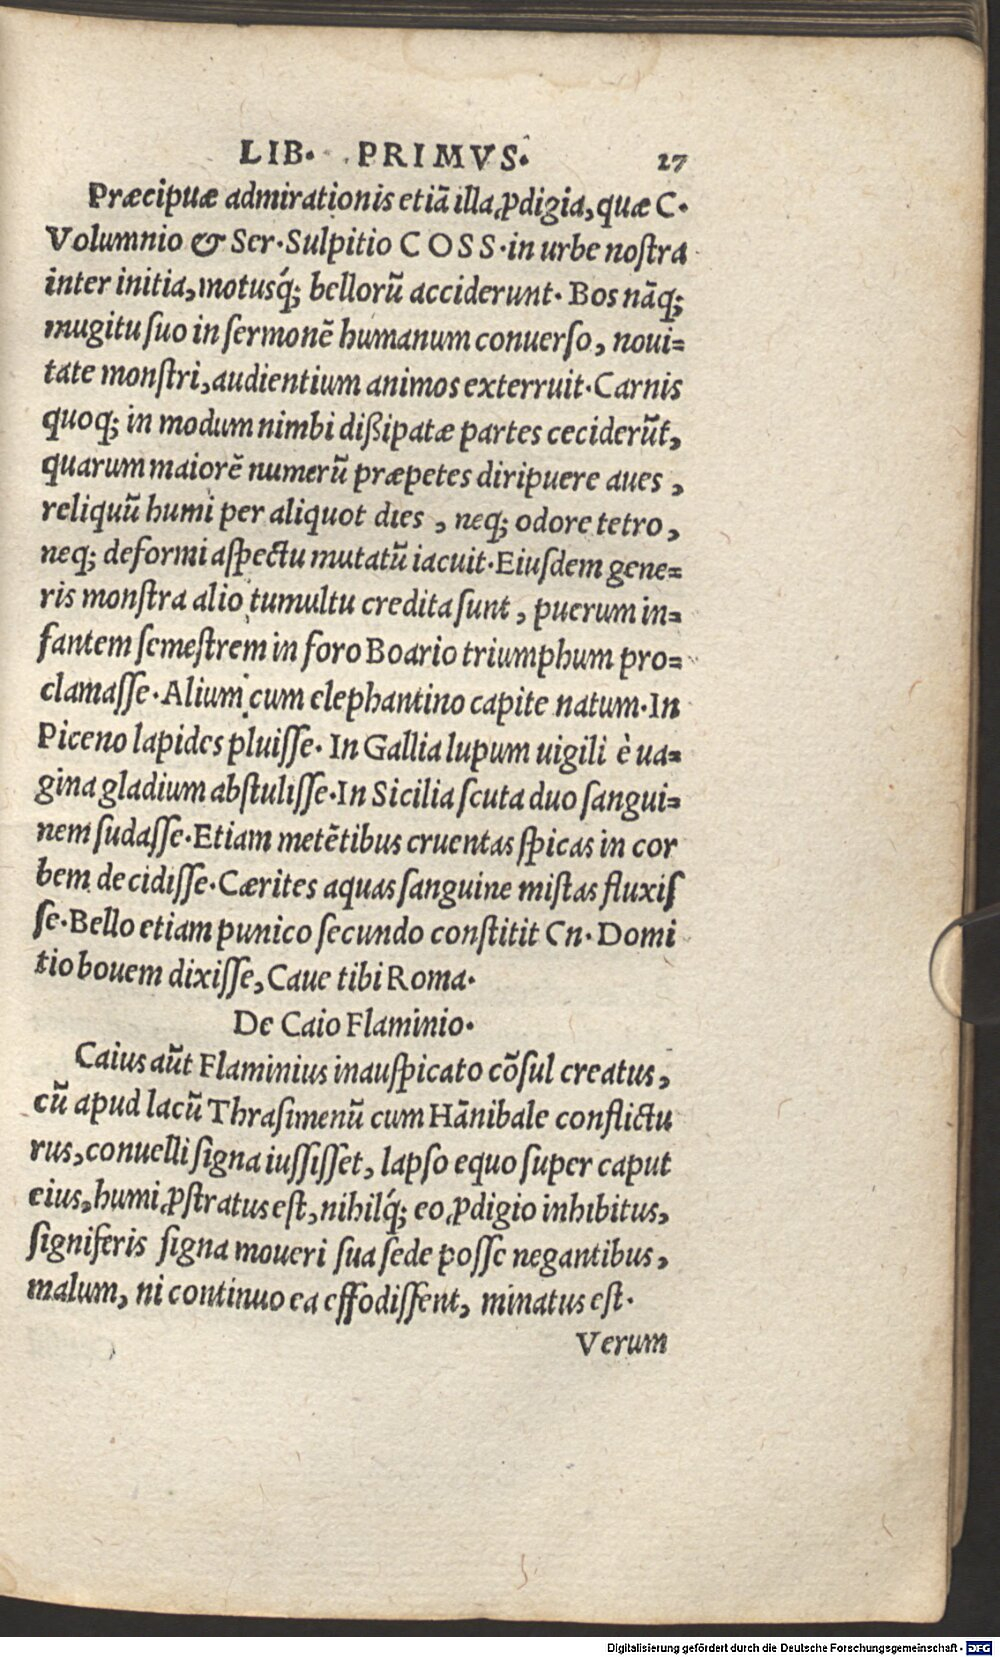 LIB. PRIMVS. 27
Præcipuæ admirationis etiã illa ꝓdigia, quæ C.
Volumnio & Ser. Sulpitio COSS. in urbe noſtra
inter initia, motusq́; bellorũ acciderunt. Bos nãq;
mugitu ſuo in ſermonẽ humanum conuerſo, noui=
tate monſtri, audientium animos exterruit. Carnis
quoq; in modum nimbi dißipatæ partes ceciderũt,
quarum maiorẽ numerũ præpetes diripuere aues,
reliquũ humi per aliquot dies, neq; odore tetro,
neq; deformi aſpectu mutatũ iacuit. Eiuſdem gene=
ris monſtra alio tumultu credita ſunt, puerum in=
fantem ſemeſtrem in foro Boario triumphum pro=
clamaſſe. Alium cum elephantino capite natum. In
Piceno lapides pluiſſe. In Gallia lupum uigili è ua=
gina gladium abſtuliſſe. In Sicilia ſcuta duo ſangui=
nem ſudaſſe. Etiam metẽtibus cruentas ſpicas in cor
bem decidiſſe. Cærites aquas ſanguine miſtas fluxiſ
ſe. Bello etiam punico ſecundo conſtitit Cn. Domi
tio bouem dixiſſe, Caue tibi Roma.
De Caio Flaminio.
Caius aũt Flaminius inauſpicato cõſul creatus,
cũ apud lacũ Thraſimenũ cum Hãnibale conflictu
rus, conuelli ſigna iuſſiſſet, lapſo equo ſuper caput
eius, humi ꝓſtratus eſt, nihilq́; eo ꝓdigio inhibitus,
ſigniferis ſigna moueri ſua ſede poſſe negantibus,
malum, ni continuo ea effodiſſent, minatus eſt.
Verum
Digitalisierung gefördert durch die Deutsche Forschungsgemeinschaft - DFG